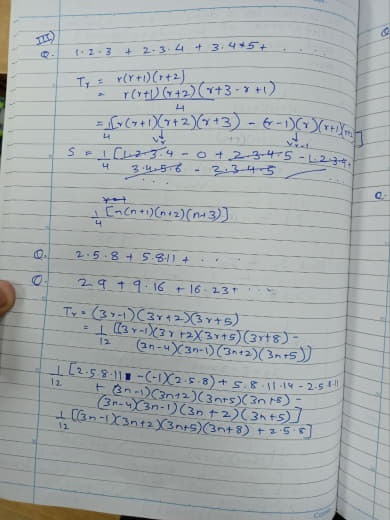 III)
Q. 1.2.3 + 2.3.4 + 3.4*5+ . . . .
Tr = r(r+1)(r+2)
= r(r+1)(r+2)(r+3-r+1)
4
= 1/4 [r(r+1)(r+2)(r+3) - (r-1)(r)(r+1)(r+2)]
Vr Vr-1
S = 1/4 [1.2.3.4 - 0 + 2.3.4.5 - 1.2.3.4
3.4.5.6 - 2.3.4.5
. . . . . .
1/4 [n(n+1)(n+2)(n+3)]
Q. 2.5.8 + 5.8.11 + . . .
Q. 2.9 + 9.16 + 16.23+ . . .
Tr = (3r-1)(3r+2)(3r+5)
= 1/12 [(3r-1)(3r+2)(3r+5)(3r+8) -
(3r-4)(3r-1)(3r+2)(3r+5)]
1/12 [2.5.8.11 -(-1)(2.5.8) + 5.8.11.14 - 2.5.8.11
+ (3n-1)(3n+2)(3n+5)(3n+8) -
(3n-4)(3n-1)(3n+2)(3n+5)]
1/12 [(3n-1)(3n+2)(3n+5)(3n+8) + 2.5.8]